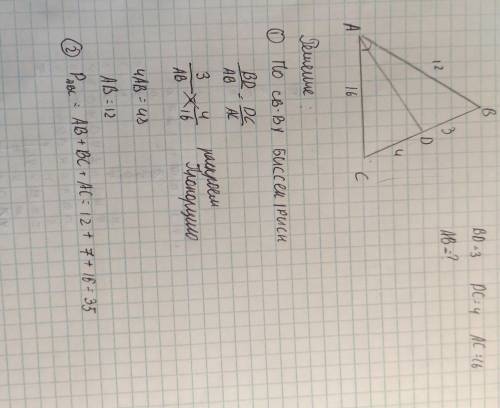 BD=3 DC=4 AC=16
AB=?
B
12
3
D
A
16
4
C
Решение:
① По св-ву биссектрисы
BD/AB = DC/AC
3/AB 4/16 раскроем пропорцию
4AB=48
AB=12
② P = AB+BC+AC=12+7+16=35